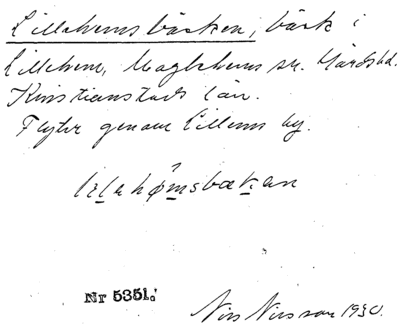 Lillehemsbäcken, bäck i
Lillehem, Maglehems sn. Gärds hd.
Kristianstads län.
Flyter genom Lillems by.
lılahømsbækan
Nr 5351.
Nils Nilsson 1930.